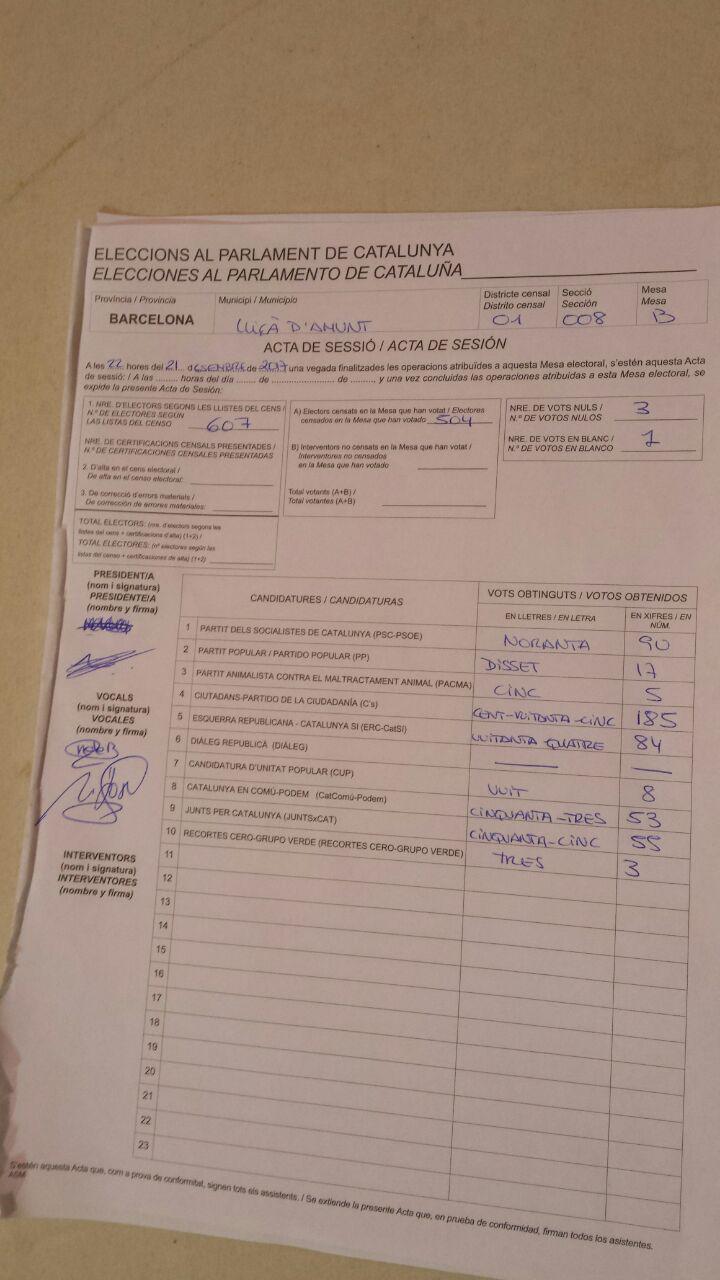 ELECCIONS AL PARLAMENT DE CATALUNYA
ELECCIONES AL PARLAMENTO DE CATALUÑA
Província / Provincia
BARCELONA
Municipi / Municipio
LLIÇÀ D'AMUNT
Districte censal
Distrito censal
01
Secció
Sección
008
Mesa
Mesa
B
ACTA DE SESSIÓ / ACTA DE SESIÓN
A les 22 hores del 21 de DESEMBRE de 2017 una vegada finalitzades les operacions atribuïdes a aquesta Mesa electoral, s'estén aquesta Acta
de sessió: / A las ......... horas del día ........ de ........................ de ........, y una vez concluidas las operaciones atribuidas a esta Mesa electoral, se
expide la presente Acta de Sesión:
1. NRE. D'ELECTORS SEGONS LES LLISTES DEL CENS /
N.º DE ELECTORES SEGÚN
LAS LISTAS DEL CENSO 607
NRE. DE CERTIFICACIONS CENSALS PRESENTADES /
N.º DE CERTIFICACIONES CENSALES PRESENTADAS
2. D'alta en el cens electoral /
De alta en el censo electoral:
3. De correcció d'errors materials /
De corrección de errores materiales:
TOTAL ELECTORS: (nre. d'electors segons les
llistes del cens + certificacions d'alta) (1+2) /
TOTAL ELECTORES: (nº electores según las
listas del censo + certificaciones de alta) (1+2)
A) Electors censats en la Mesa que han votat / Electores
censados en la Mesa que han votado 504
B) Interventors no censats en la Mesa que han votat /
Interventores no censados
en la Mesa que han votado
Total votants (A+B) /
Total votantes (A+B)
NRE. DE VOTS NULS /
N.º DE VOTOS NULOS 3
NRE. DE VOTS EN BLANC /
N.º DE VOTOS EN BLANCO 1
PRESIDENT/A
(nom i signatura)
PRESIDENTE/A
(nombre y firma)
VOCALS
(nom i signatura)
VOCALES
(nombre y firma)
INTERVENTORS
(nom i signatura)
INTERVENTORES
(nombre y firma)
CANDIDATURES / CANDIDATURAS
VOTS OBTINGUTS / VOTOS OBTENIDOS
EN LLETRES / EN LETRA
EN XIFRES / EN NÚM.
1 PARTIT DELS SOCIALISTES DE CATALUNYA (PSC-PSOE) NORANTA 90
2 PARTIT POPULAR / PARTIDO POPULAR (PP) DISSET 17
3 PARTIT ANIMALISTA CONTRA EL MALTRACTAMENT ANIMAL (PACMA) CINC 5
4 CIUTADANS-PARTIDO DE LA CIUDADANÍA (C's) CENT-VUITANTA-CINC 185
5 ESQUERRA REPUBLICANA - CATALUNYA SÍ (ERC-CatSí) VUITANTA QUATRE 84
6 DIÀLEG REPUBLICÀ (DIÀLEG)
7 CANDIDATURA D'UNITAT POPULAR (CUP) VUIT 8
8 CATALUNYA EN COMÚ-PODEM (CatComú-Podem) CINQUANTA-TRES 53
9 JUNTS PER CATALUNYA (JUNTSxCAT) CINQUANTA-CINC 55
10 RECORTES CERO-GRUPO VERDE (RECORTES CERO-GRUPO VERDE) TRES 3
11
12
13
14
15
16
17
18
19
20
21
22
23
S'estén aquesta Acta que, com a prova de conformitat, signen tots els assistents. / Se extiende la presente Acta que, en prueba de conformidad, firman todos los asistentes.